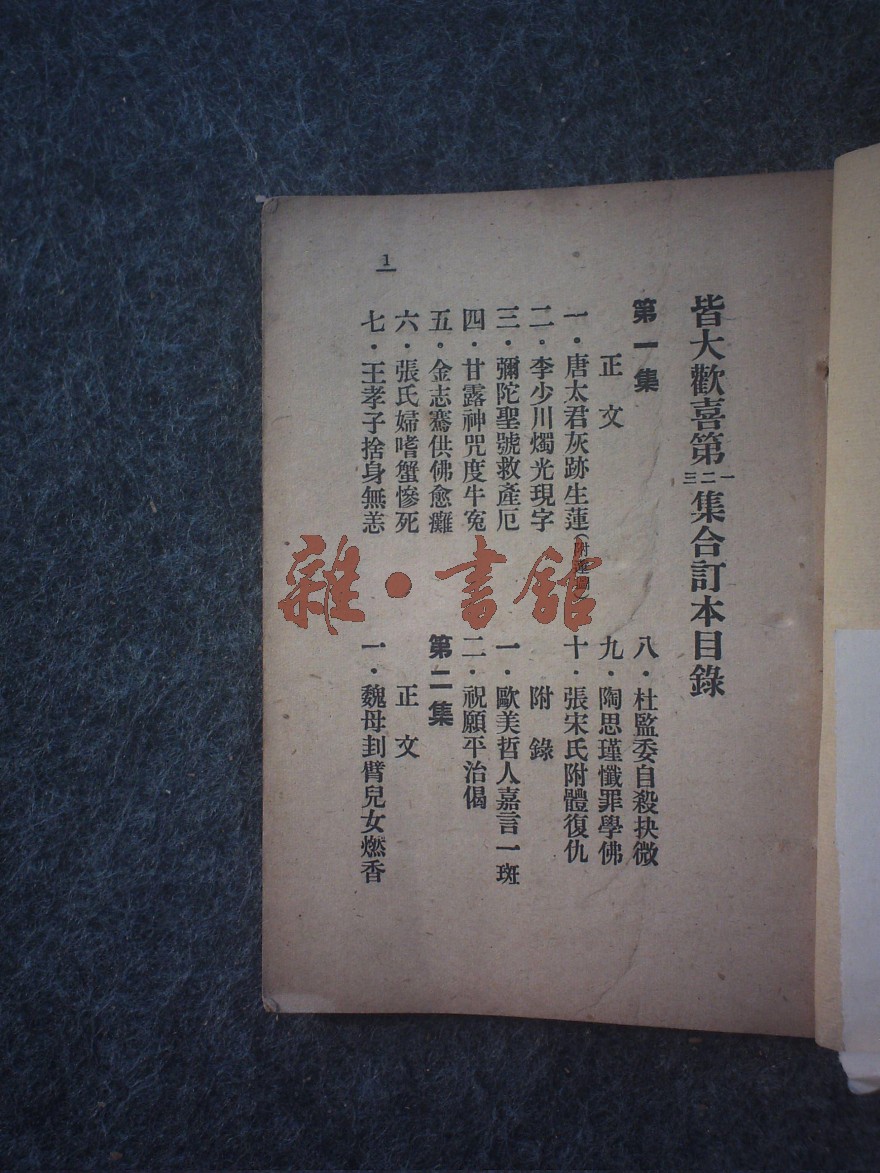 皆大歡喜第一二三集合訂本目錄
第一集
正文
一·唐太君灰跡生蓮(附蓮圖)
二·李少川燭光現字
三·彌陀聖號救產厄
四·甘露神咒度牛冤
五·金志騫供佛愈癱
六·張氏婦嗜蟹慘死
七·王孝子捨身無恙
八·杜監委自殺抉微
九·陶思瑾懺罪學佛
十·張宋氏附體復仇
附錄
一·歐美哲人嘉言一斑
二·祝願平治偈
第二集
正文
一·魏母刲臂兒女燃香
1
雜·書館